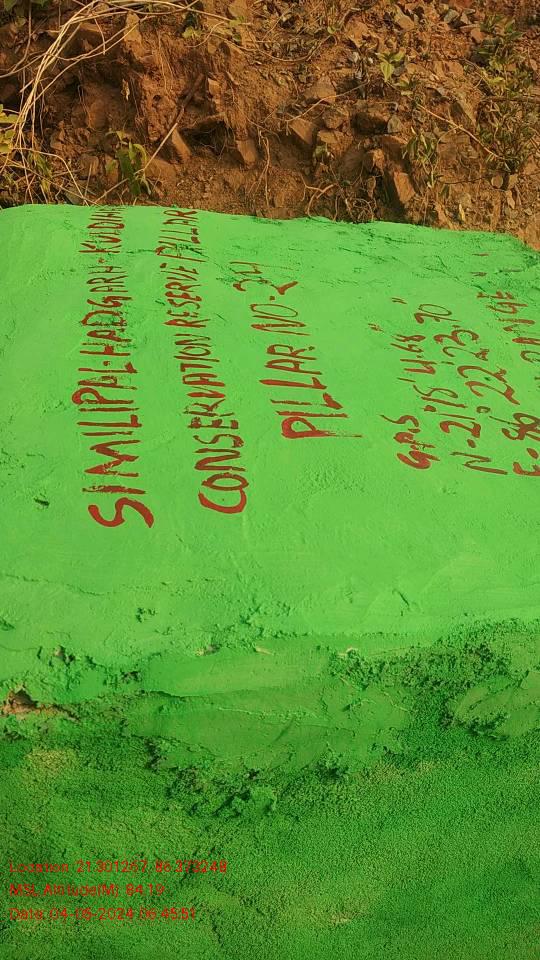 SIMILIPAL-HADGARH-KULDIHA
CONSERVATION RESERVE PILLAR
PILLAR NO-24
GPS
N-21°15'4.68"
E-86°22'23.70
Location: 21.301267, 86.373248
MSL Altitude(M): 84.19
Date: 04-05-2024 06:45:51